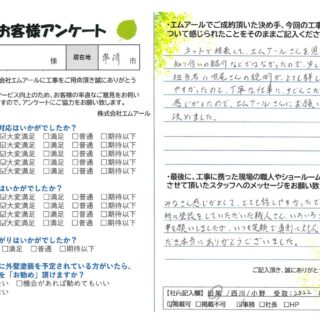 お客様アンケート
様
居在地
市
株式会社エムアールに工事をご用命頂き誠にありがとう
サービス向上のため、お客様の率直なご意見をお伺い
すので、アンケートにご協力をお願い致します。
株式会社エムアール
対応はいかがでしたか？
☑大変満足 □満足 □普通 □期待以下
☑大変満足 □満足 □普通 □期待以下
□大変満足 □満足 □普通 □期待以下
はいかがでしたか？
大変満足 □満足 □普通 □期待以下
大変満足 □満足 □普通 □期待以下
大変満足 □満足 □普通 □期待以下
がりはいかがでしたか？
満足 □普通 □期待以下
に外壁塗装を予定されている方がいたら、
を「お勧め」頂けますか？
ない □機会があれば勧めてもいい
ない
・エムアールでご成約頂いた決め手、今回の工事
ついて感じられたことをそのままご記入ください
ネットで検索して、エムアールさんを
知り合いの紹介などではなかったので、少し
担当者の田尾さんの説明がとても
やすかったのと、丁寧な仕事を
感じがしたので、エムアールさんにお願
決めました。
・最後に、工事に携った現場の職人やショールーム
させて頂いたスタッフへのメッセージをお願い致
みなさん感じがよくて、とても話しやすかったで
時に塗装をしていただいた職人さん、いたらない
事も願いしましたが、いつも笑顔で
だき本当にありがとうございました。
ご記入頂き、誠にありがとう
【社内記入欄】田尾/西川/小野 受取:2022
☑掲載可 □掲載不可 ☑事務 □社長 □HP